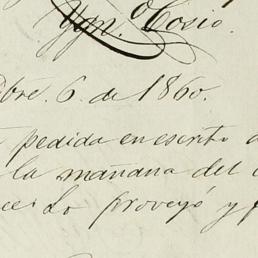 Ygn. Cosio.
bre. 6. de 1860.
pedida en escrito
la mañana del
Lo proveyó y